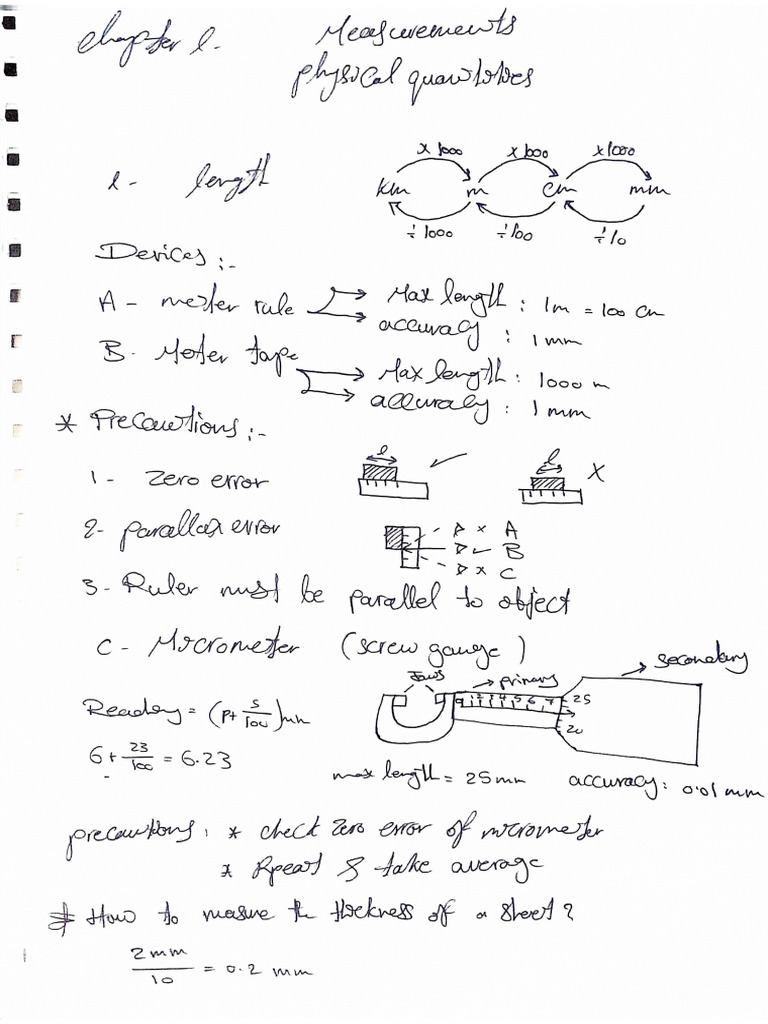 chapter 1. Measurements
physical quantities
1- length
x 1000 x 1000 x 1000
km m cm mm
÷ 1000 ÷ 100 ÷ 10
Devices :-
A - meter rule Max length : 1m = 100 cm
accuracy : 1 mm
B. Meter tape Max length : 1000 m
accuracy : 1 mm
* Precautions :-
1 - Zero error l ✓ l X
2- parallax error x A
✓ B
x C
3- Ruler must be parallel to object
C - Micrometer (screw gauge)
Jaws → primary → secondary
Reading = (P + S/100) mm
0 1 2 3 4 5 6 7 25
20
6 + 23/100 = 6.23
max length = 25 mm accuracy : 0.01 mm
precautions : * check zero error of micrometer
* Rpeat & take average
# How to measure the thickness of a sheet ?
2 mm / 10 = 0.2 mm